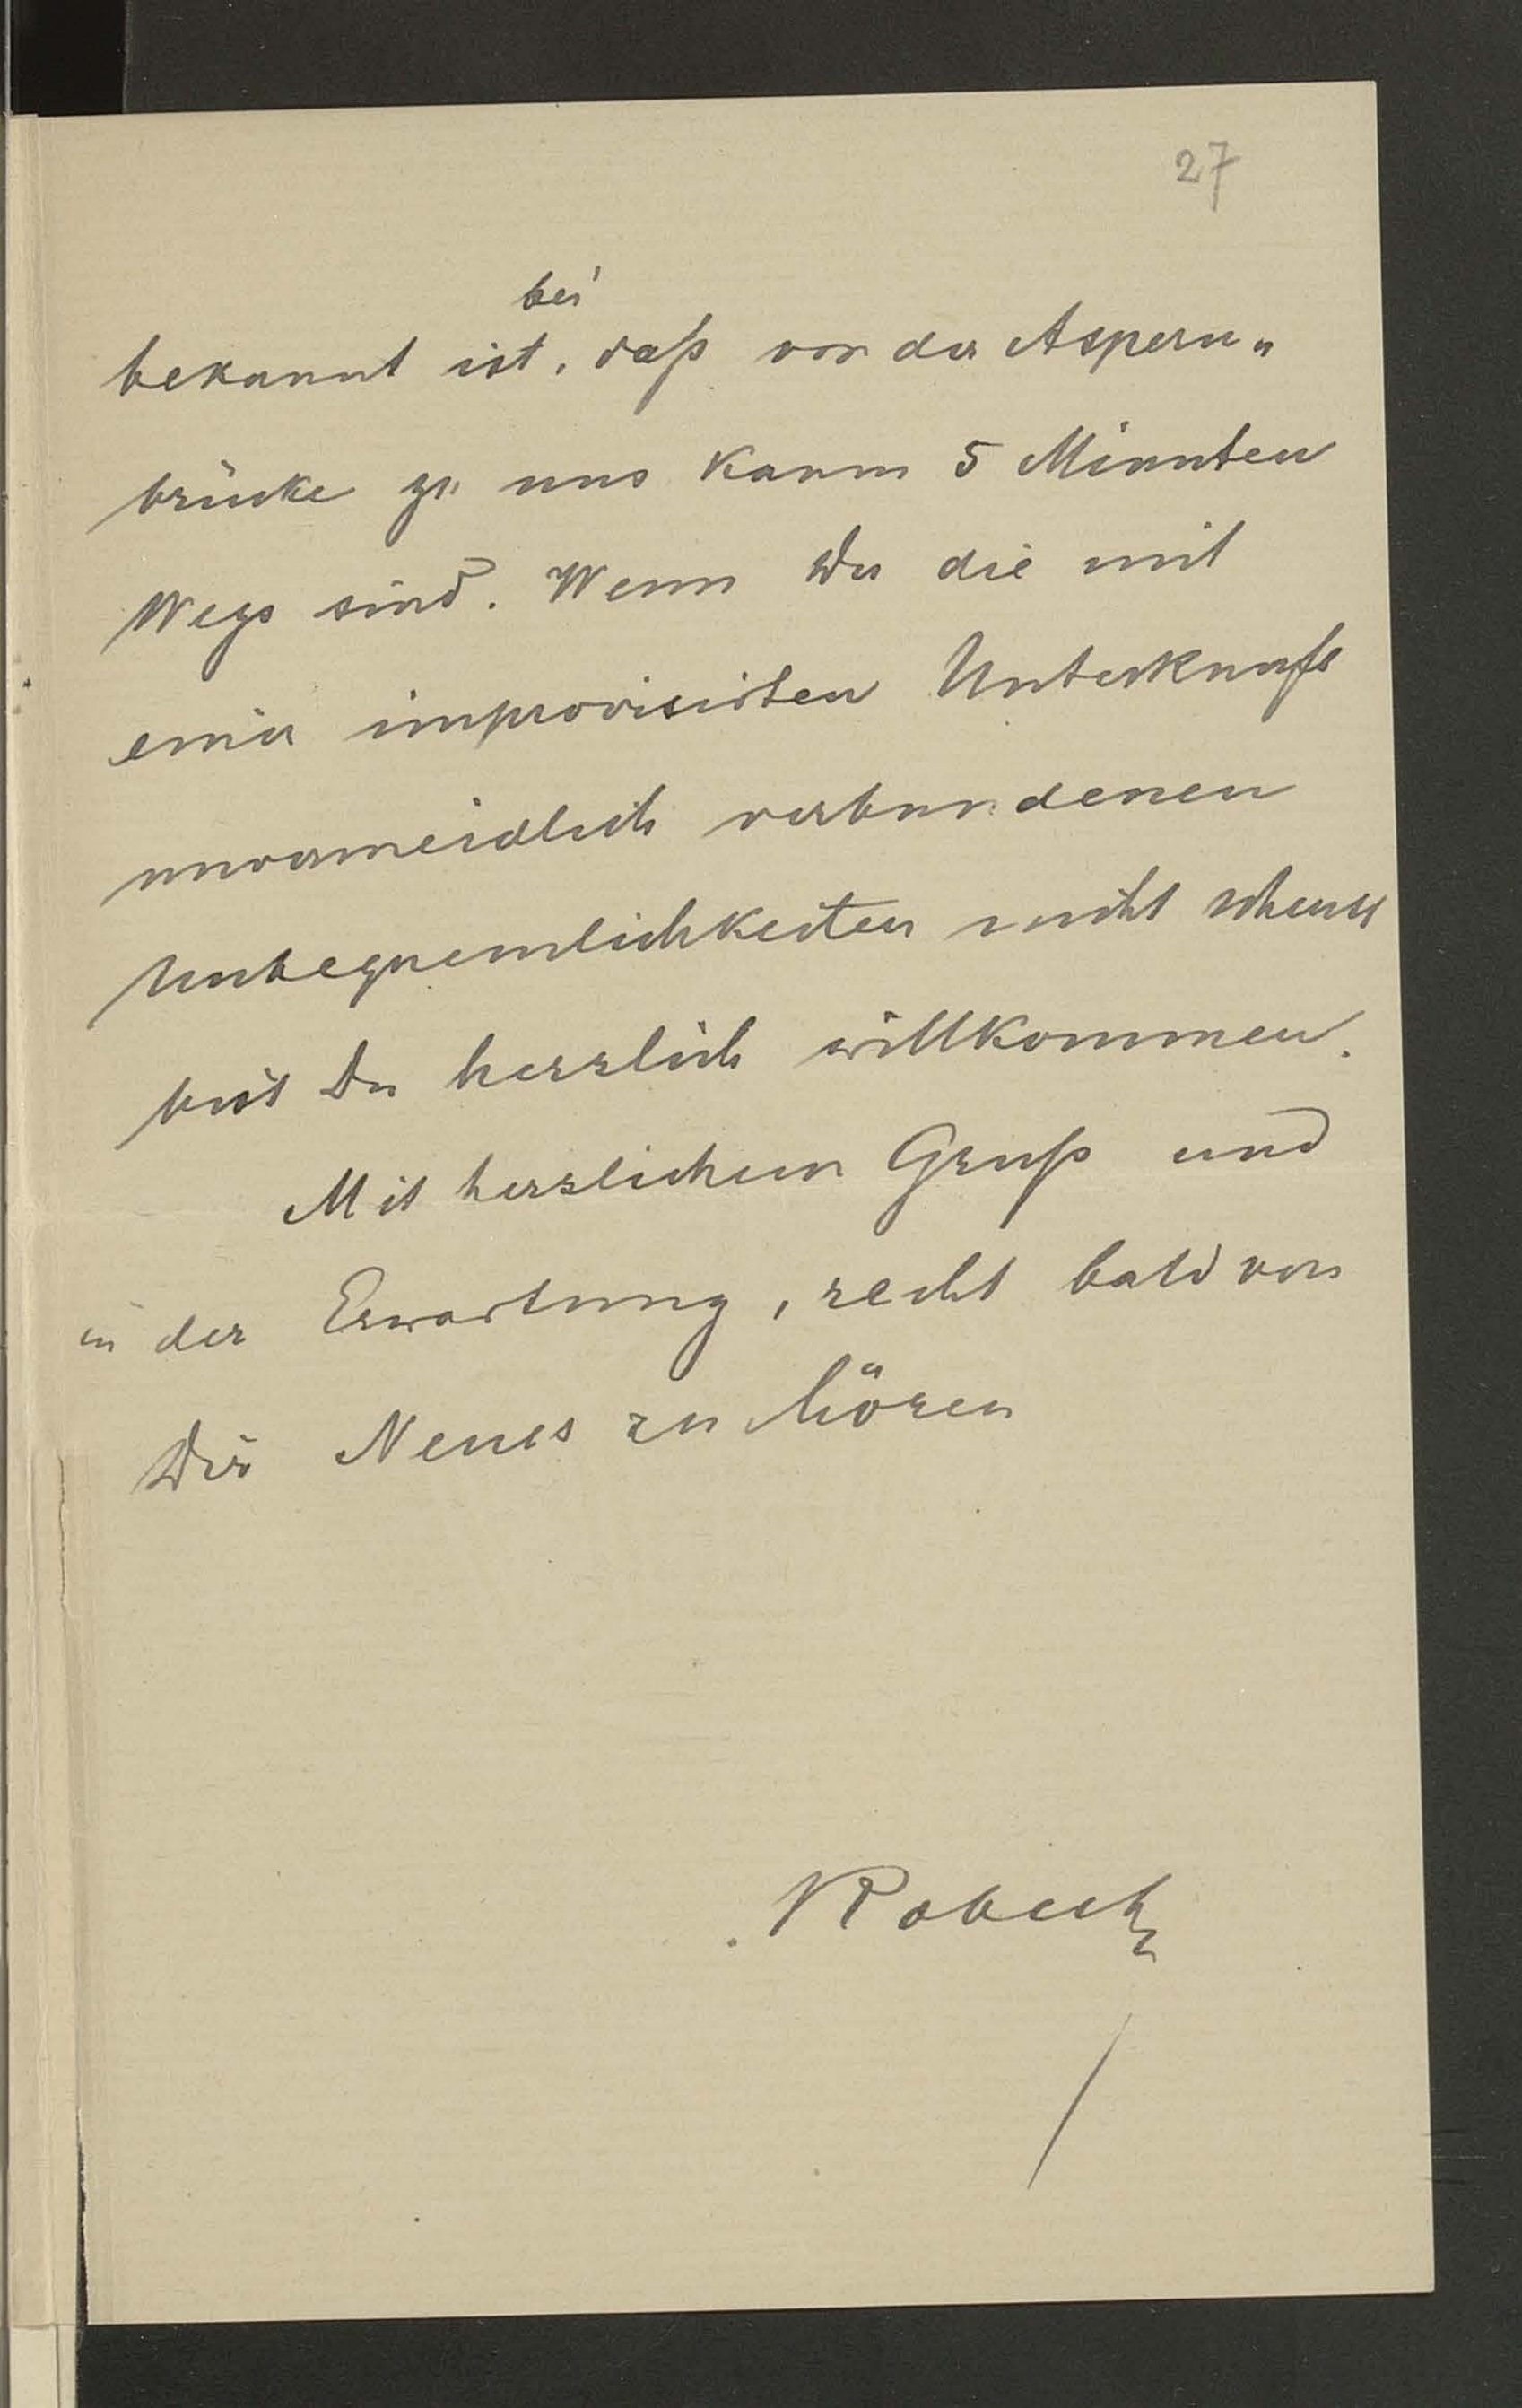 27
bei
bekannt ist, daß von der Aspern-
brücke zu uns kaum 5 Minuten
Wegs sind. Wenn Du die mit
einer improvisirten Unterkunft
unvermeidlich verbundenen
Unbequemlichkeiten nicht scheust
bist Du herzlich willkommen.
Mit herzlichem Gruß und
in der Erwartung, recht bald von
Dir Neues zu hören
Robert